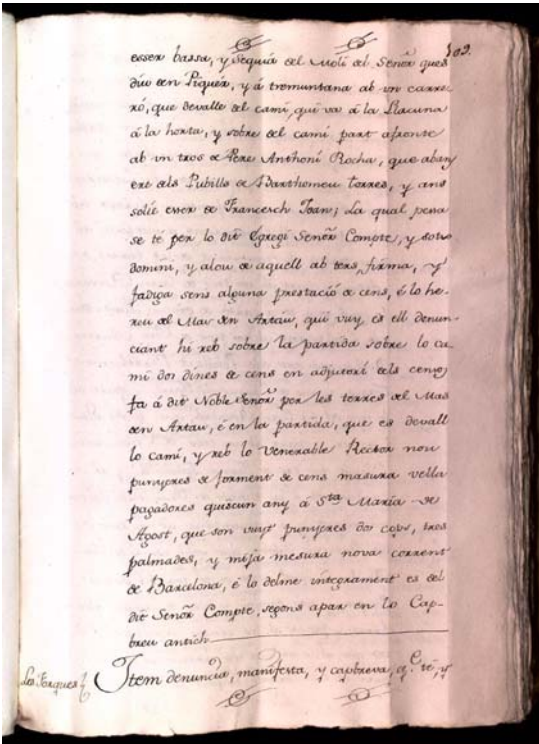 102.
esser bassa, y sequia del Molí del Señor ques
diu den Piquer, y á tremuntana ab vn carre
ró, que devalle del camí, qui va á la Llacuna
á la horta, y sobre del camí part afronte
ab vn tros de Pere Anthoni Rocha, que aban
ere dels Pubills de Barthomeu torres, y ans
solie esser de Francesch Joan; La qual pessa
se té per lo dit Egregi Señor Compte, y sots
domini, y alou de aquell ab ters, firma, y
fadiga sens alguna prestació de cens, é lo he-
reu del Mas den Artau, qui vuy es ell denun-
ciant hi reb sobre la partida sobre lo ca-
mí dos dines de cens en adjutori dels cens, q̃
fa á dit Noble Señor per les terres del Mas
den Artau, é en la partida, que es devall
lo camí, y reb lo Venerable Rector nou
punyeres de forment de cens masura vella
pagadores quiscun any á S.ta María de
Agost, que son vuyt punyeres dos cops, tres
palmades, y mija mesura nova corrent
de Barcelona, é lo delme integrament es del
dit Señor Compte, segons apar en lo Cap-
breu antich
Les Forques
Item denuncia, manifesta, y capbreva, q.e té, y